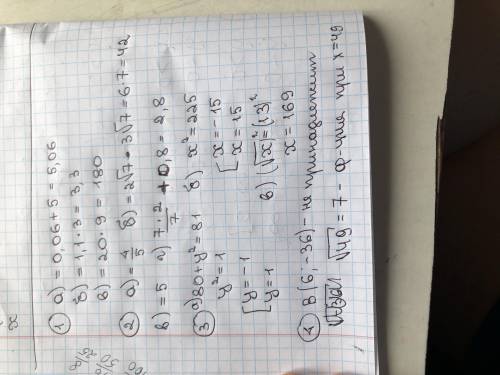 x
1) а) = 0,06+5 = 5,06
б) = 1,1·3 = 3,3
в) = 20·9 = 180
2) а) = 4/5 б) = 2√7 · 3√7 = 6·7 = 42
в) = 5 г) 7·2/7 + 0,8 = 2,8
3) а) 80+y²=81 б) x²=225
y²=1 [x=-15
[y=-1 x=15
y=1 в) (√x)²=(13)²
x=169
4) В(6;-36) - не принадлежит
√49 = 7 - ф-ция при x=49